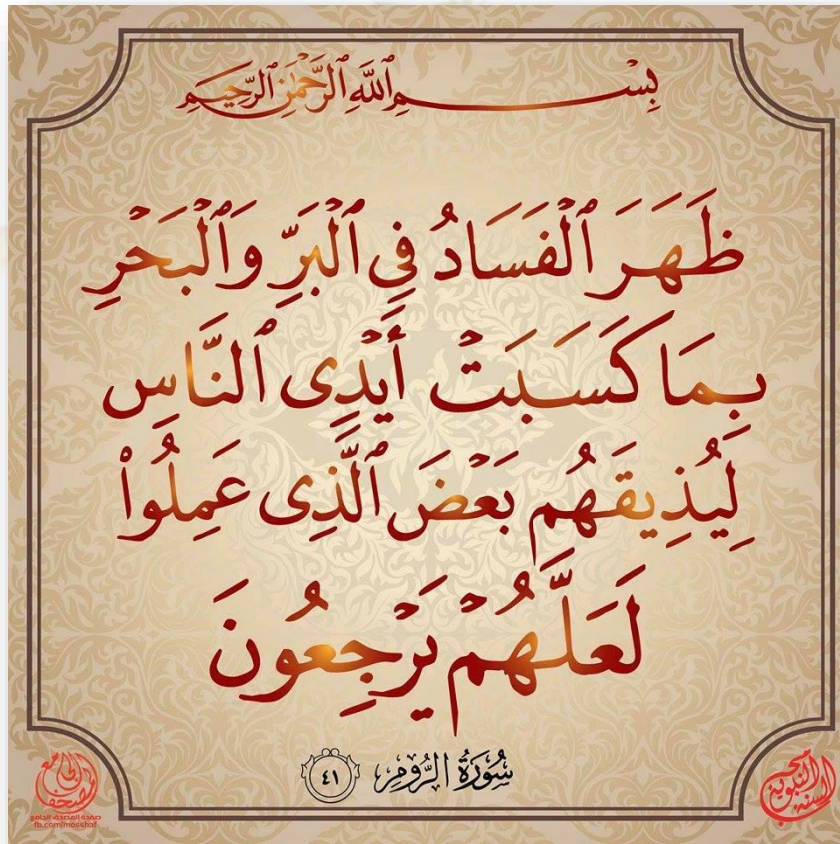 بِسْمِ ٱللَّهِ ٱلرَّحْمَٰنِ ٱلرَّحِيمِ
ظَهَرَ ٱلْفَسَادُ فِى ٱلْبَرِّ وَٱلْبَحْرِ
بِمَا كَسَبَتْ أَيْدِى ٱلنَّاسِ
لِيُذِيقَهُم بَعْضَ ٱلَّذِى عَمِلُوا۟
لَعَلَّهُمْ يَرْجِعُونَ
سُورَةُ الرُّومِ ٤١
المصحف الجامع
صفحة المصحف الجامع
fb.com/mosshaf
السنه النبوية